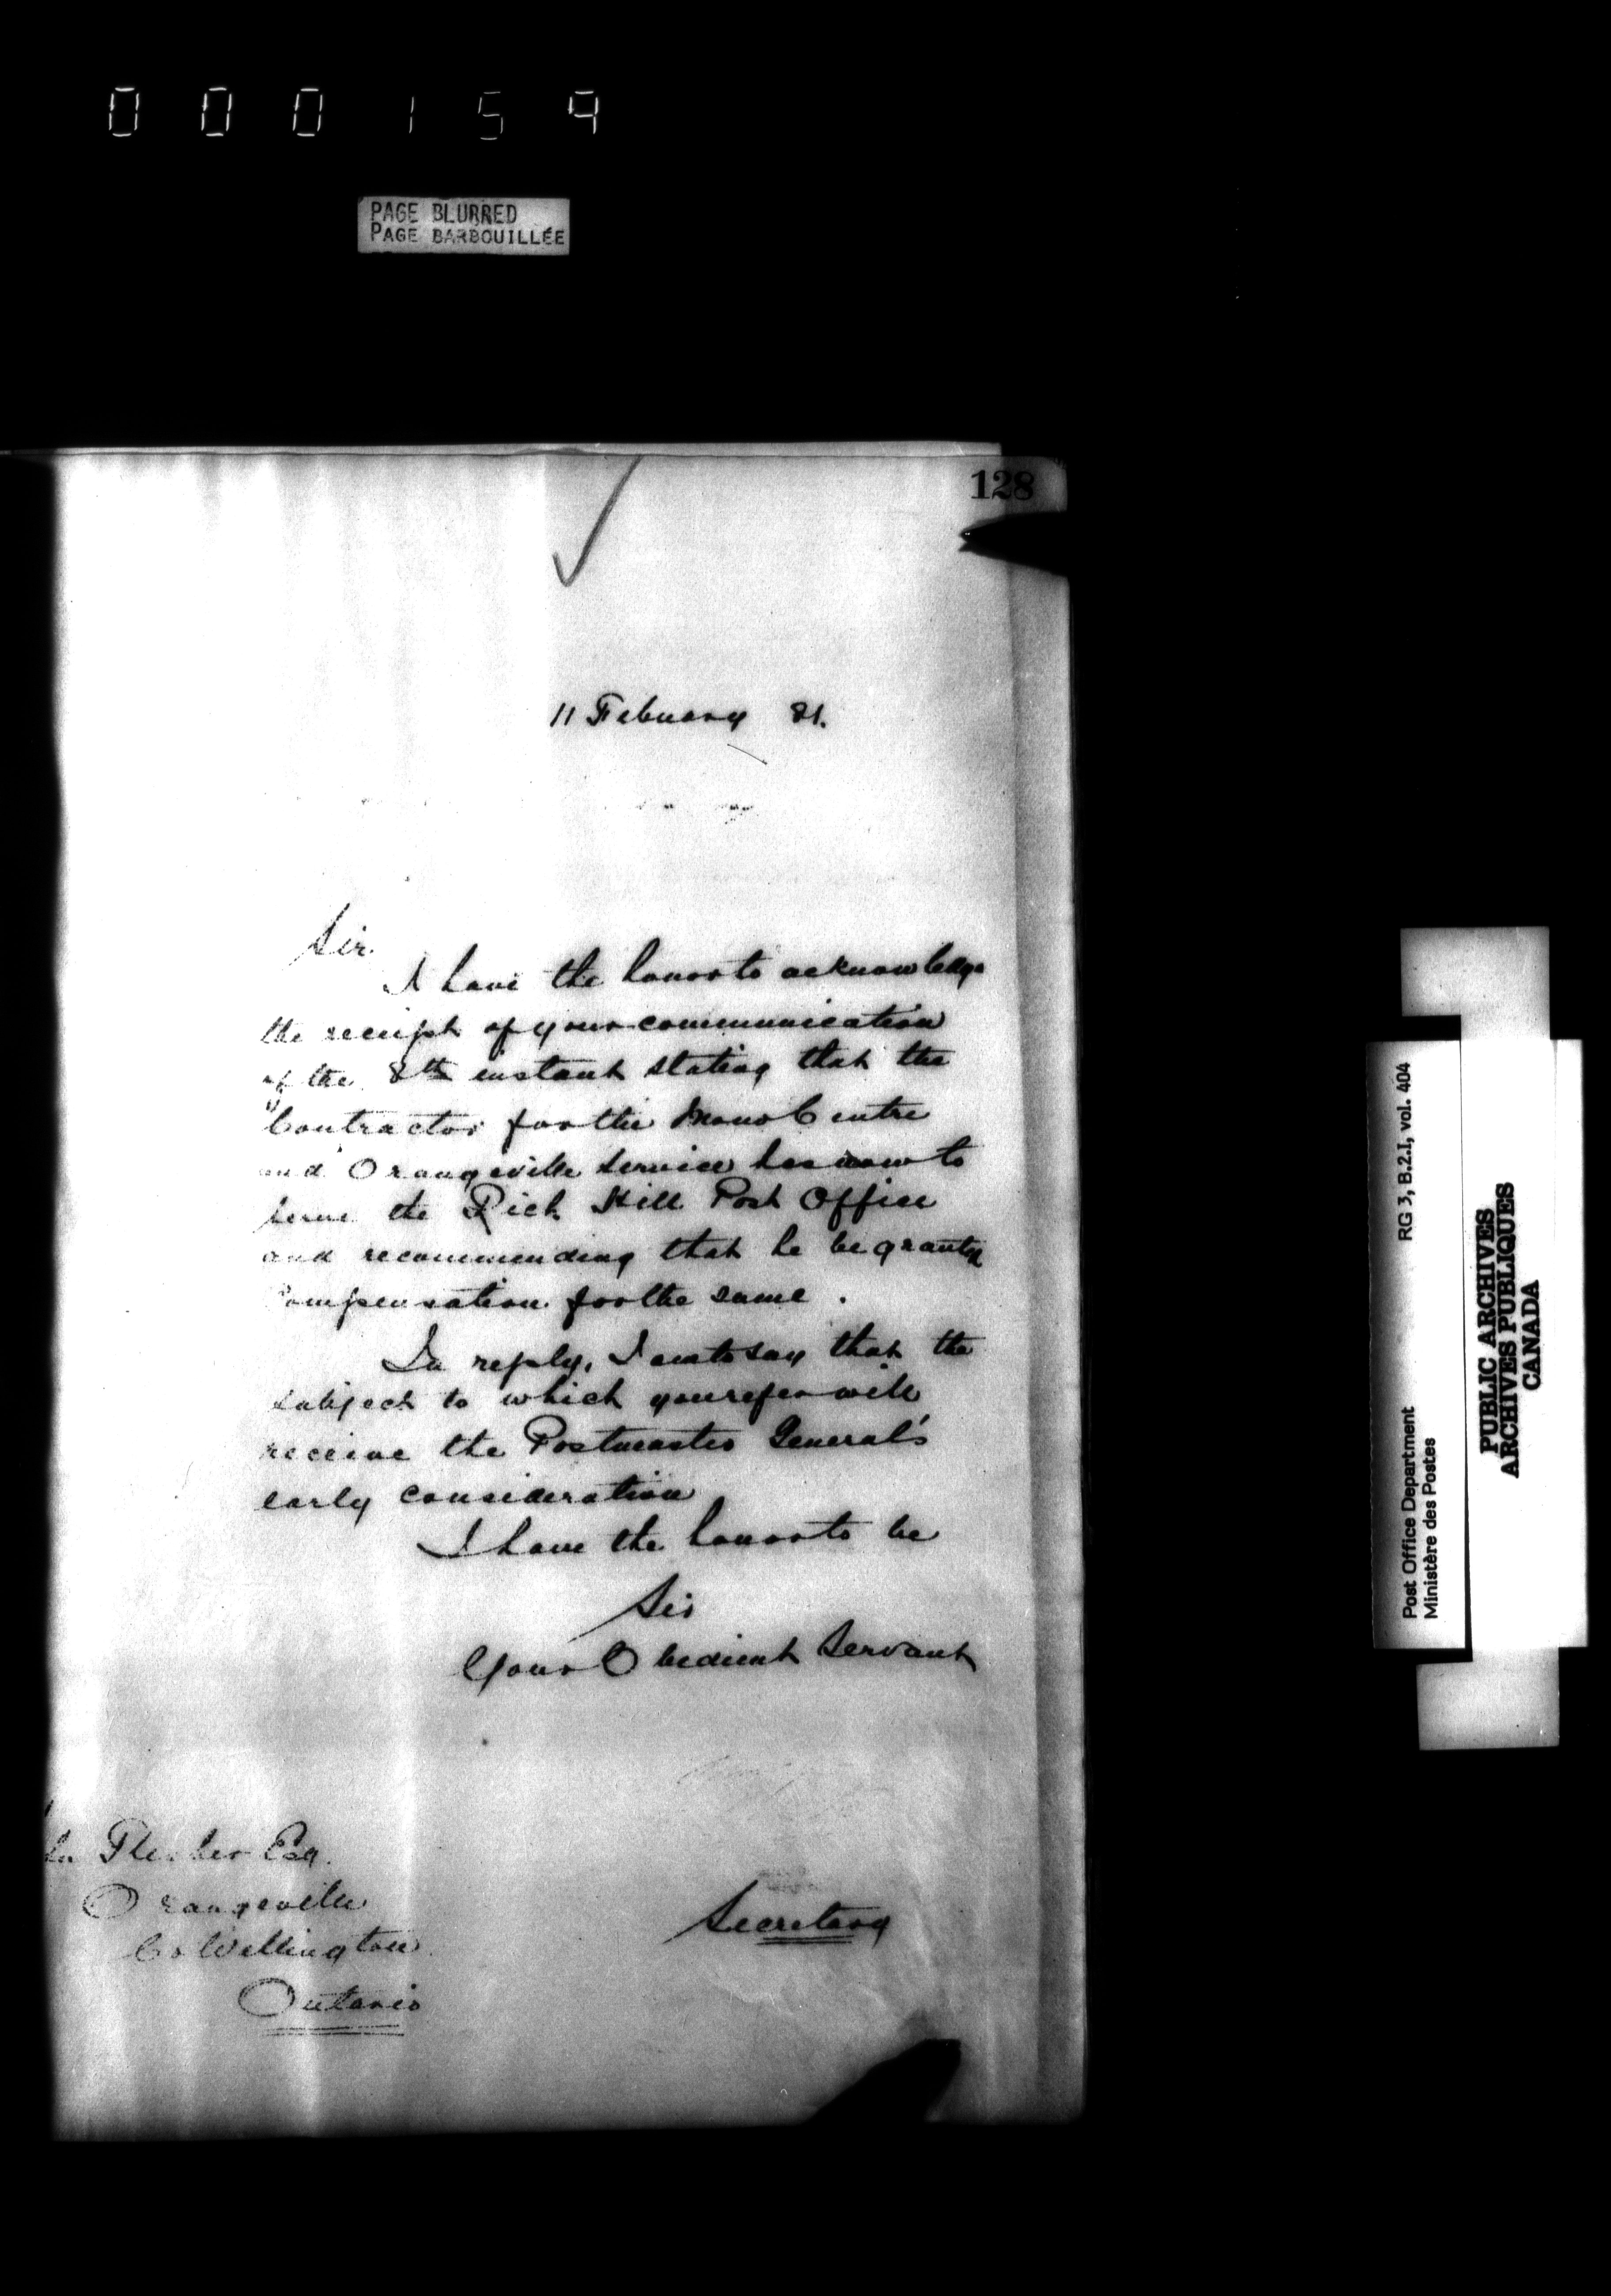 000159
PAGE BLURRED
PAGE BARBOUILLÉE
128
11 February 81.
Sir.
I have the honor to acknowledge
the receipt of your communication
of the 8th instant stating that the
Contractor for the Mono Centre
and Orangeville Service has now to
serve the Rich Hill Post Office
and recommending that he be granted
Compensation for the same.
In reply, I am to say that the
subject to which you refer will
receive the Postmaster General's
early consideration
I have the honor to be
Sir
Your Obedient Servant
Esq.
Orangeville
Co Wellington
Ontario
Secretary
RG 3, B.2.I, vol. 404
Post Office Department
Ministère des Postes
PUBLIC ARCHIVES
ARCHIVES PUBLIQUES
CANADA